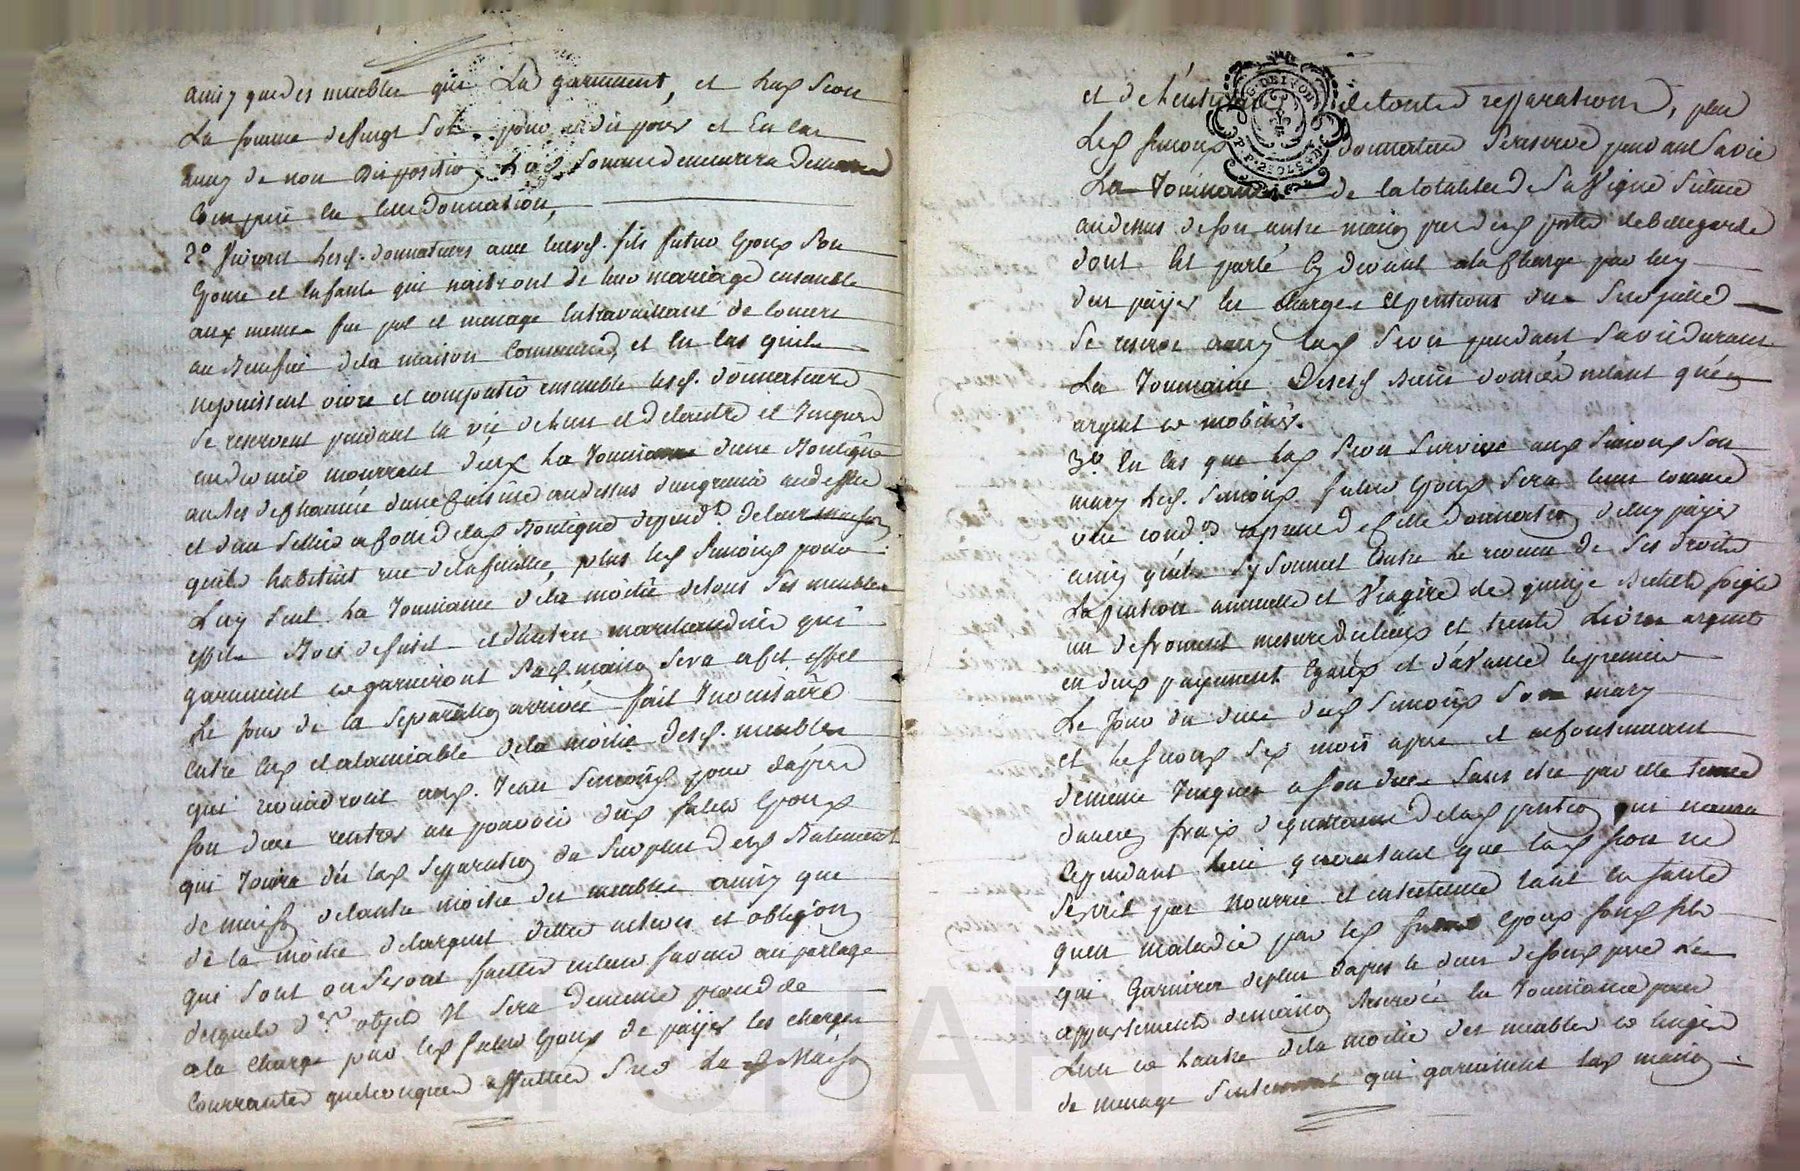 ainsy que des meubles qui La garnissent, et lad Pion
La somme de vingt sols pour en disposer et En cas
ainsy de non disposition Lad somme demeurera de meme
Comprise en leur donnation,
2° Vivront lesd. donnateurs avec leursd. fils futur Epoux Son
Epouse et Enfants qui naitront de leur mariage ensemble
aux memes feu pot et menage En travaillant de concert
au Benefice de la maison Commune, et En cas quils
ne puissent vivre et compatir ensemble lesd. donnateurs
Se reservent pendant la vie de l'un et de l'autre et Jusques
au dernier mourrant d'eux La Jouissance d'une Boutique
au bas de chambre d'une Cuisine au dessus d'un grenier au dessus
et d'un Sellier a Coté de lad Boutique depend.t de leur maison
quils habitent rue , plus led Simong pour
Luy Seul La Jouissance de la moitié de tous Ses meubles
effets Bois de fusil et d'autres marchandises qui
garnissent et garniront Sad. maison Sera a Cet effet
Le Jour de la Separation arrivée fait Inventaire
Entre Eux et a l'amiable de la moitié desd. meubles
qui reviendront aud. Jean Simong pour d'apres
Son deces rentrer au pouvoir dud futur Epoux
qui Jouira dès lad Separation du Surplus desd Batiments
de maison de l'autre moitié des meubles ainsy que
de la moitié de l'argent dettes actives et obligãons
qui Sont ou Seront faittes en leur faveur au partage
desquels d.ers objets Il Sera de meme procedé
a la Charge par led futur Epoux de payer les charges
Courrantes quelconques affectées Sur lad Maison
et de l'entretien de toutes repparations, plus
Led Simong donnateur Se reserve pendant Sa vie
La Jouissance de la totalité de Sa Vigne Située
au dessus de Son autre maison pres des portes de Bellegarde
dont Est parlé Cy devant a la Charge par luy
d'en payer les charges Et pentions une Sur icelle
Se reserve ainsy lad Pion pendant Sa vie durant
La Jouissance Desesd Biens dottés n'etant qu'en
argent et mobilier.
3° En Cas que lad Pion Survive aud Simong Son
mary led. Simong futur Epoux Sera tenu comme
une cond.on expresse de Cette donnation de luy payer
ainsy quil S'y Soumet Outre le revenu de Ses droits
La pention annuelle et Viagere de quinze Bichets Seigle
un de froment mesure du lieu et trente Livres argent
en deux payements Egaux et d'avance le premier
Le Jour du deces dud Simong Son mary
et le Second Six mois apres et a Continuer
de meme Jusques a Son deces Sans etre par elle tenue
d'aucuns fraix de quittance de lad pention qui n'aura
Cependant lieu qu'autant que lad Pion ne
Seroit pas nourrie et entretenue tant en Santé
qu'en maladie par led futur Epoux Sond fils
qui Garnira de plus d'apres le deces de Sond pere Les
appartements de maison reservés En Jouissance pour
L'un et L'autre de la moitié des meubles et linges
de menage Seulement qui garnissent lad maison